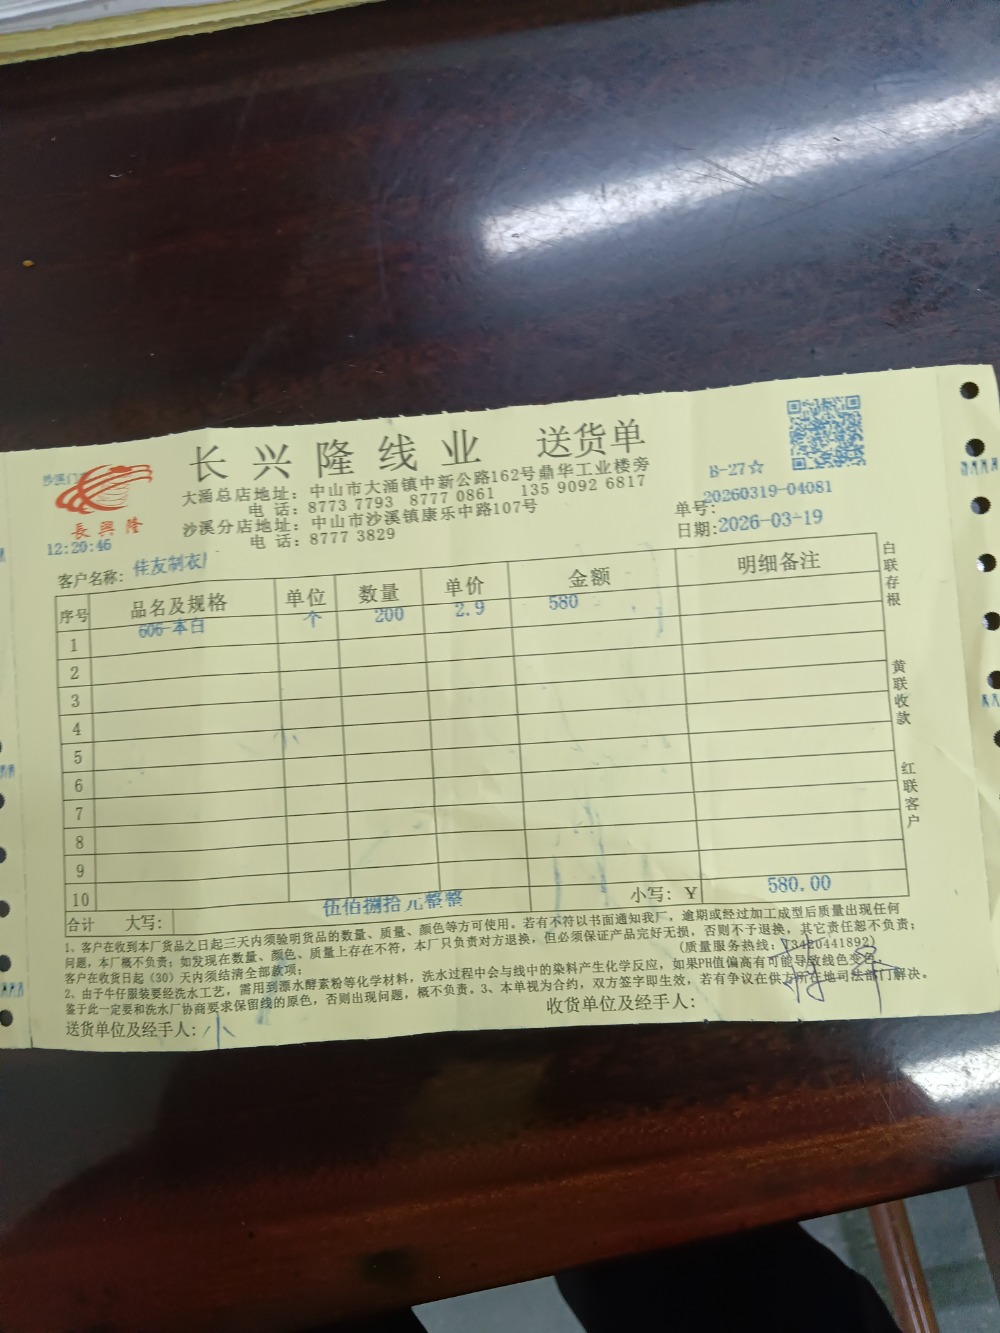 长兴隆线业 送货单
大涌总店地址：中山市大涌镇中新公路162号鼎华工业楼旁
电 话：8773 7793 8777 0861 135 9092 6817
沙溪分店地址：中山市沙溪镇康乐中路107号
电 话：8777 3829
長興隆
12:20:46
B-27☆
单号：20260319-04081
日期：2026-03-19
客户名称：佳友制衣厂
序号 品名及规格 单位 数量 单价 金额 明细备注
1 606-本白 个 200 2.9 580
2
3
4
5
6
7
8
9
10
合计 大写： 伍佰捌拾元整整 小写：Y 580.00
白联存根
黄联收款
红联客户
1、客户在收到本厂货品之日起三天内须验明货品的数量、质量、颜色等方可使用。若有不符以书面通知我厂，逾期或经过加工成型后质量出现任何
问题，本厂概不负责；如发现在数量、颜色、质量上存在不符，本厂只负责对方退换，但必须保证产品完好无损，否则不予退换，其它责任恕不负责；
客户在收货日起（30）天内须结清全部款项； （质量服务热线：13420441892）
2、由于牛仔服装要经洗水工艺，需用到漂水酵素粉等化学材料，洗水过程中会与线中的染料产生化学反应，如果PH值偏高有可能导致线色变色，
鉴于此一定要和洗水厂协商要求保留线的原色，否则出现问题，概不负责。3、本单视为合约，双方签字即生效，若有争议在供方所在地司法部门解决。
送货单位及经手人： 收货单位及经手人：